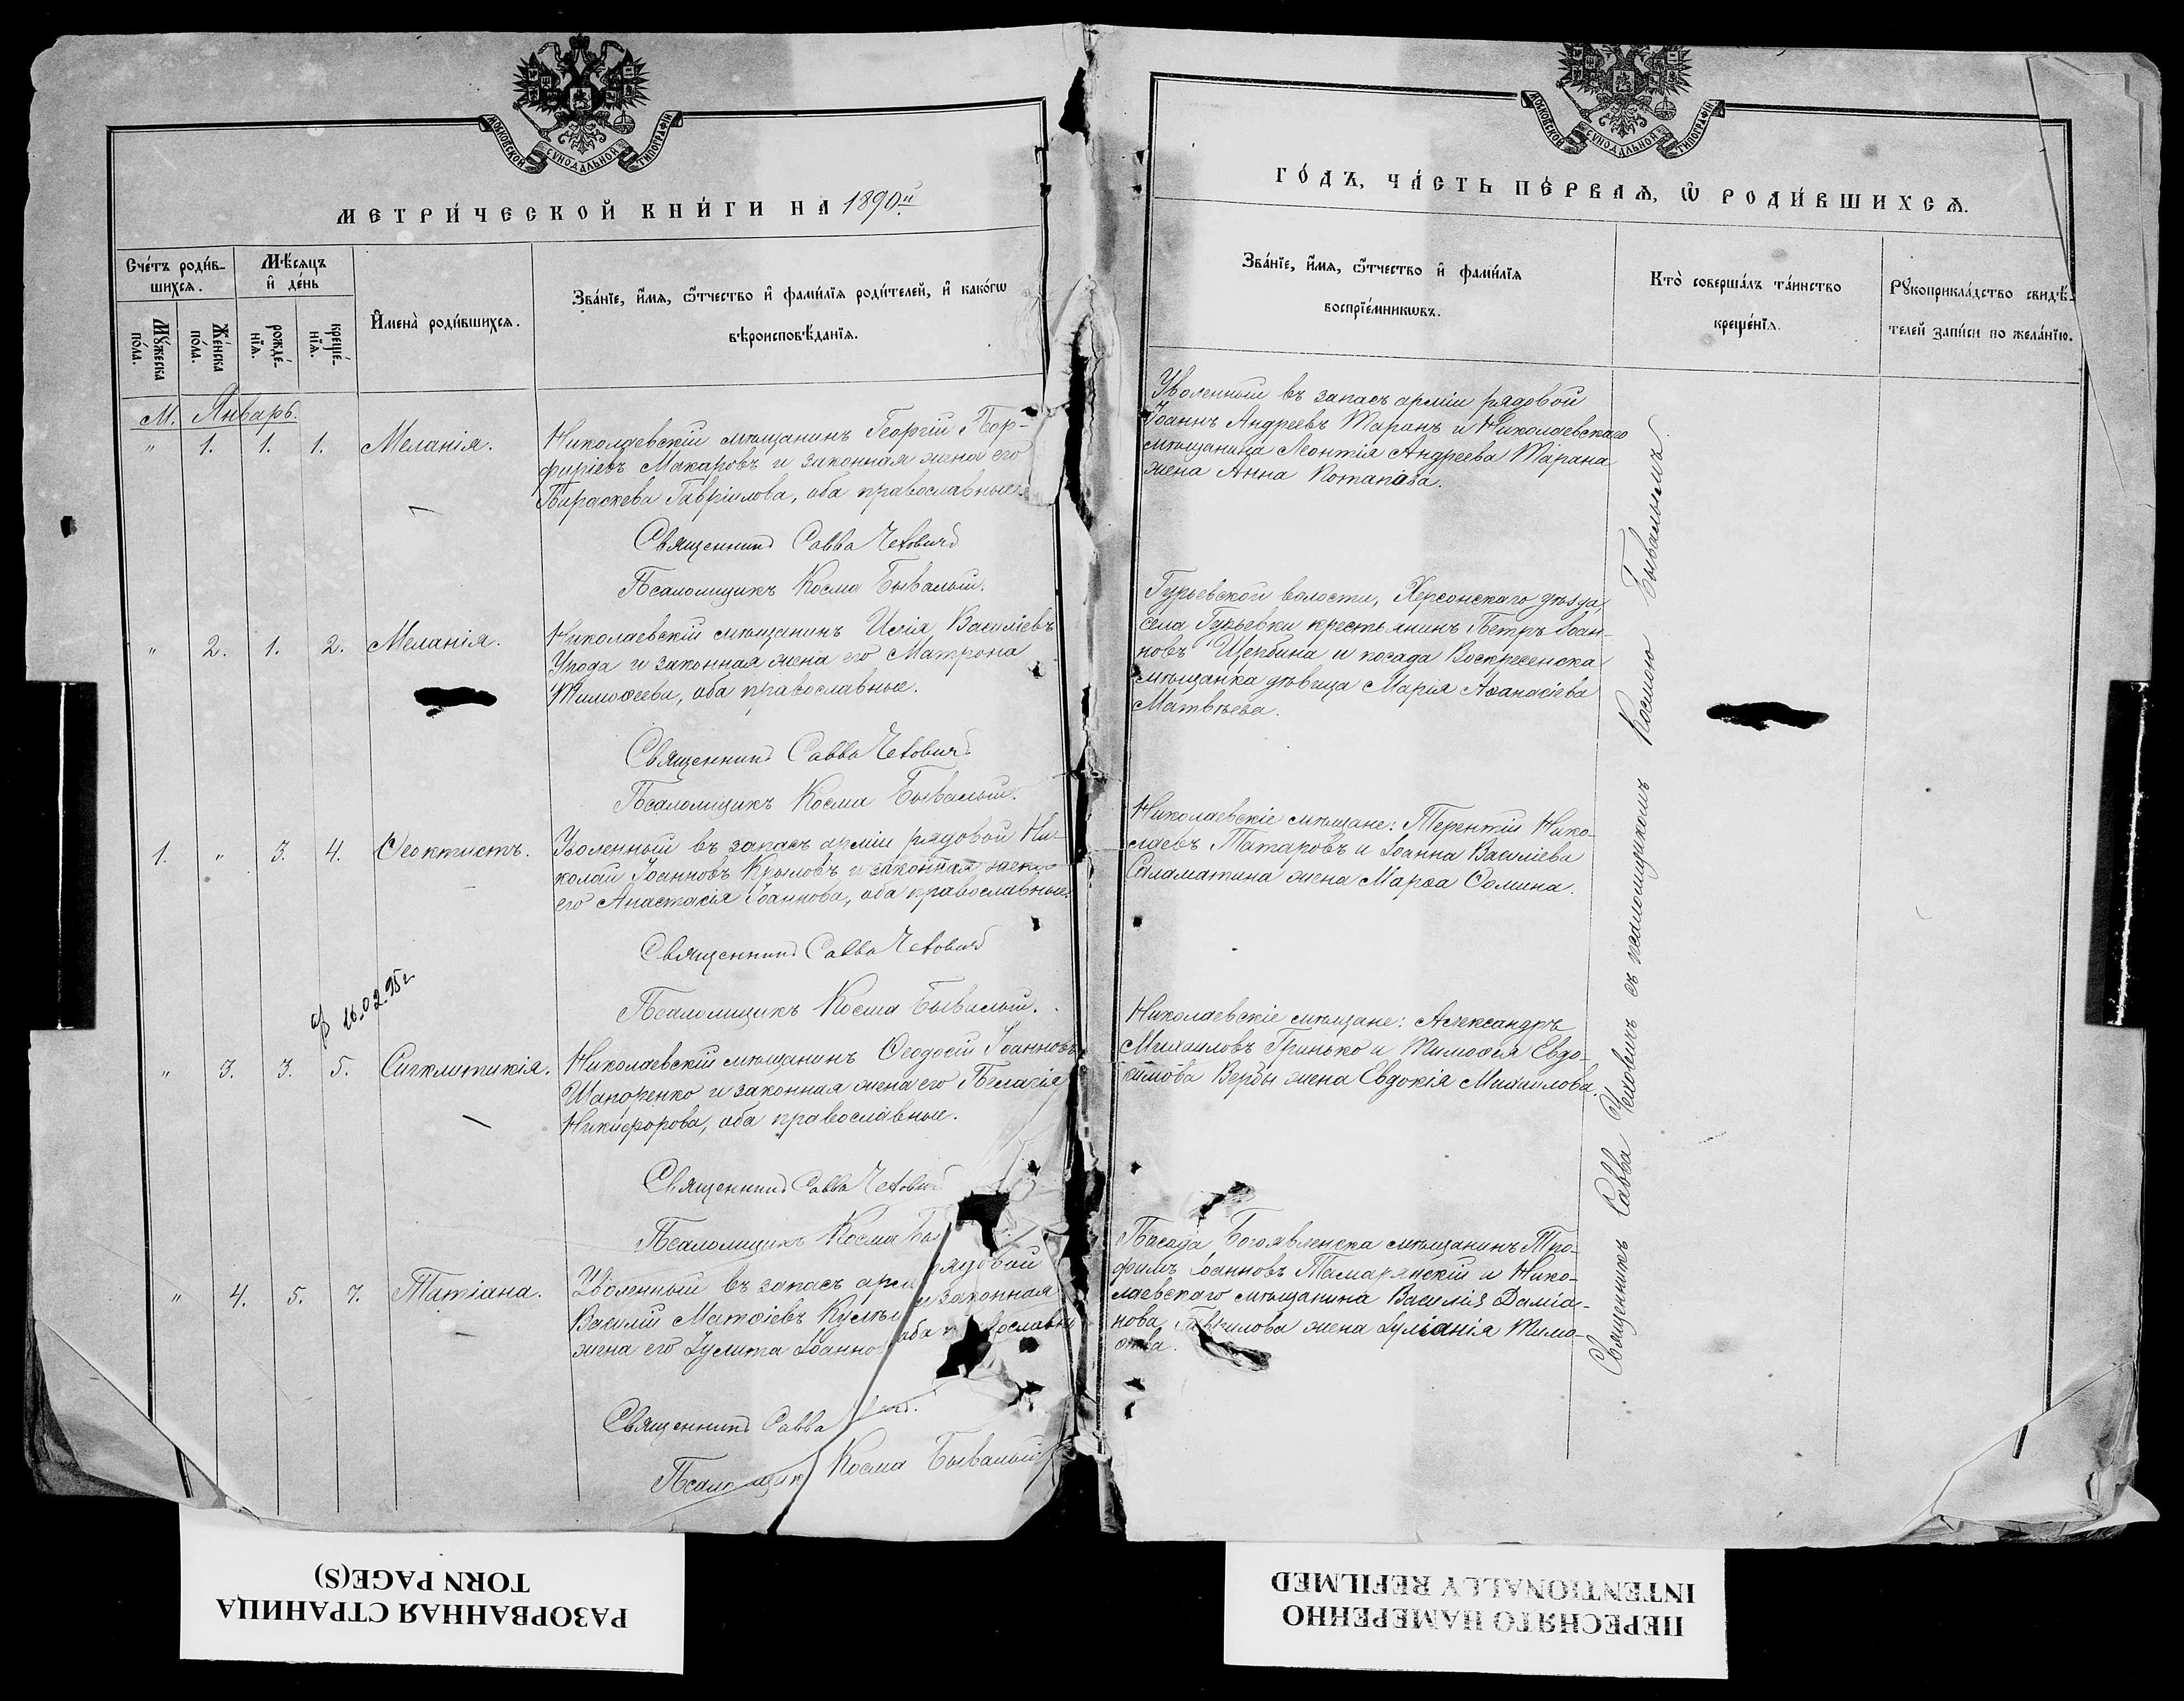 МОСКОВСКОЙ СѴНОДАЛЬНОЙ ТИПОГРАФІИ
МЕТРИ́ЧЕСКОЙ КНИ́ГИ НА 1890й
Сче́тъ роди́в-
шихсѧ.
Мѣ́сѧцъ
и҆ де́нь
Мꙋ́жеска
по́ла.
Же́нска
по́ла.
рожде́-
нїѧ.
креще́-
нїѧ.
И҆мена̀ роди́вшихсѧ.
Зва́нїе, и҆́мѧ, ѻ҆́тчество и҆ фамı́лїѧ роди́телей, и҆ како́гѡ
вѣроисповѣ́данїѧ.
М. Январь.
" 1. 1. 1. Меланія.
Николаевскій мѣщанинъ Георгій Пор-
фиріевъ Макаровъ и законная жена его
Параскева Гавріилова, оба православные.
Священникъ Савва Чеховичъ
Псаломщикъ Косма Бывалый.
" 2. 1. 2. Меланія.
Николаевскій мѣщанинъ Илія Василіевъ
Урода и законная жена его Матрона
Тимоѳеева, оба православные.
Священникъ Савва Чеховичъ
Псаломщикъ Косма Бывалый.
1. " 3. 4. Ѳеоктистъ.
Уволенный въ запасъ арміи рядовой Ни-
колай Іоанновъ Крыловъ и законная жена
его Анастасія Іоаннова, оба православные.
Священникъ Савва Чеховичъ
Псаломщикъ Косма Бывалый.
16.02.95г
" 3. 3. 5. Сигклитикія.
Николаевскій мѣщанинъ Ѳеодосій Іоанновъ
Шапоренко и законная жена его Пелагія
Никифорова, оба православные.
Священникъ Савва Чехович
Псаломщикъ Косма Бы
" 4. 5. 7. Татіана.
Уволенный въ запасъ арм рядовой
Василій Матѳіевъ и законная
жена его Іулита Іоаннов оба православн
Священникъ Савва
Псаломщик Косма Бывалый
МОСКОВСКОЙ СѴНОДАЛЬНОЙ ТИПОГРАФІИ
ГО́ДЪ, ЧА́СТЬ ПЕ́РВАѦ, Ѡ҆ РОДИ́ВШИХСѦ.
Зва́нїе, и҆́мѧ, ѻ҆́тчество и҆ фамı́лїѧ
воспрїе́мникѡвъ.
Кто̀ соверша́лъ та́инство
креще́нїѧ.
Рꙋкоприкла́дство свидѣ́-
телей за́писи по жела́нїю.
Уволенный въ запасъ арміи рядовой
Іоаннъ Андреевъ Таранъ и Николаевскаго
мѣщанина Леонтія Андреева Тарана
жена Анна Потапова.
Гурьевской волости, Херсонскаго уѣзда,
села Гурьевки крестьянинъ Петръ Іоан-
новъ Щербина и посада Воскресенска
мѣщанка дѣвица Марія Аѳанасіева
Матвѣева.
Николаевскіе мѣщане: Терентій Нико-
лаевъ Татаровъ и Іоанна Василіева
Саламатина жена Марѳа Ѳомина.
Николаевскіе мѣщане: Александръ
Михаиловъ Гринько и Тимоѳея Евдо-
кимова Вербы жена Евдокія Михаилова.
Посада Богоявленска мѣщанинъ Тро-
фимъ Іоанновъ Тамарянскій и Нико-
лаевскаго мѣщанина Василія Даміа-
нова Гаврилова жена Іуліанія Тимо-
ѳеева.
Священникъ Савва Чеховичъ съ псаломщикомъ Космою Бывалымъ.
РАЗОРВАННАЯ СТРАНИЦА
TORN PAGE(S)
ПЕРЕСНЯТО НАМЕРЕННО
INTENTIONALLY REFILMED